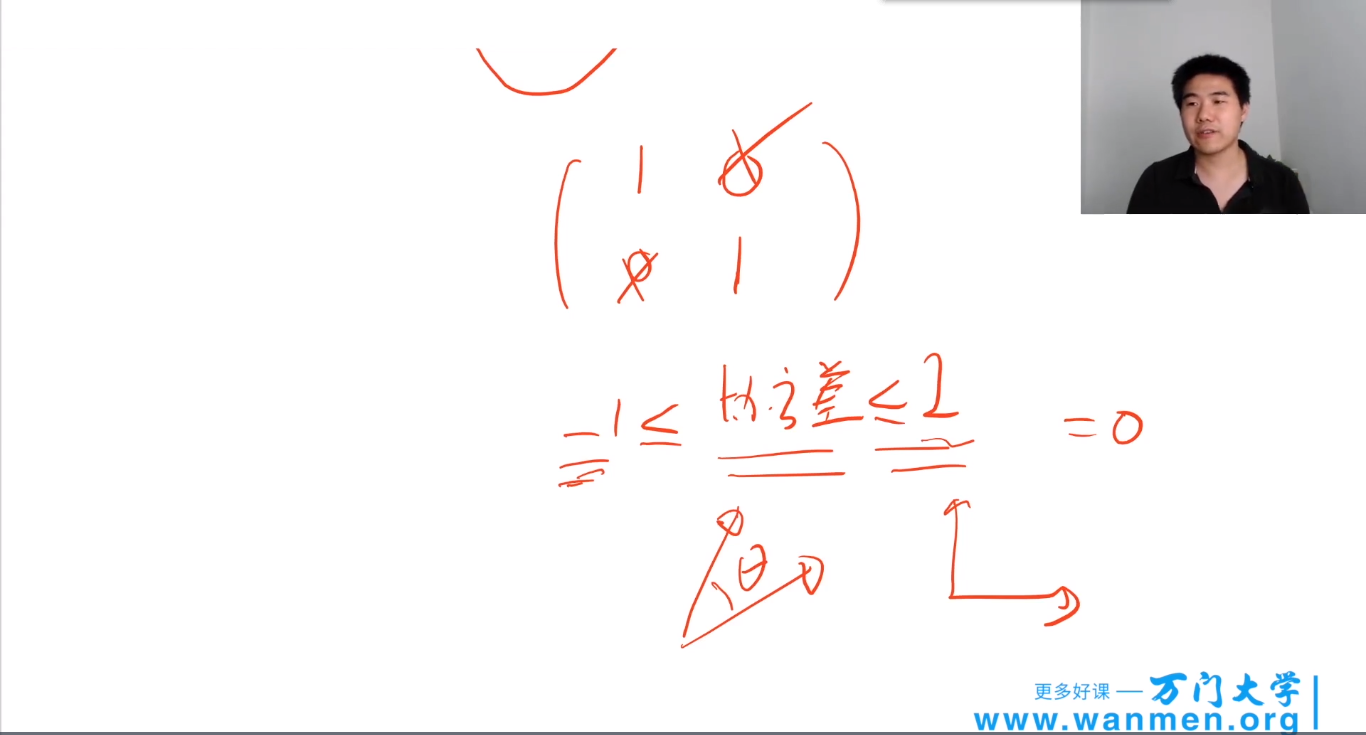 1 0
0 1
-1 ≤ 协方差 ≤ 1 = 0
θ
更多好课 — 万门大学
www.wanmen.org